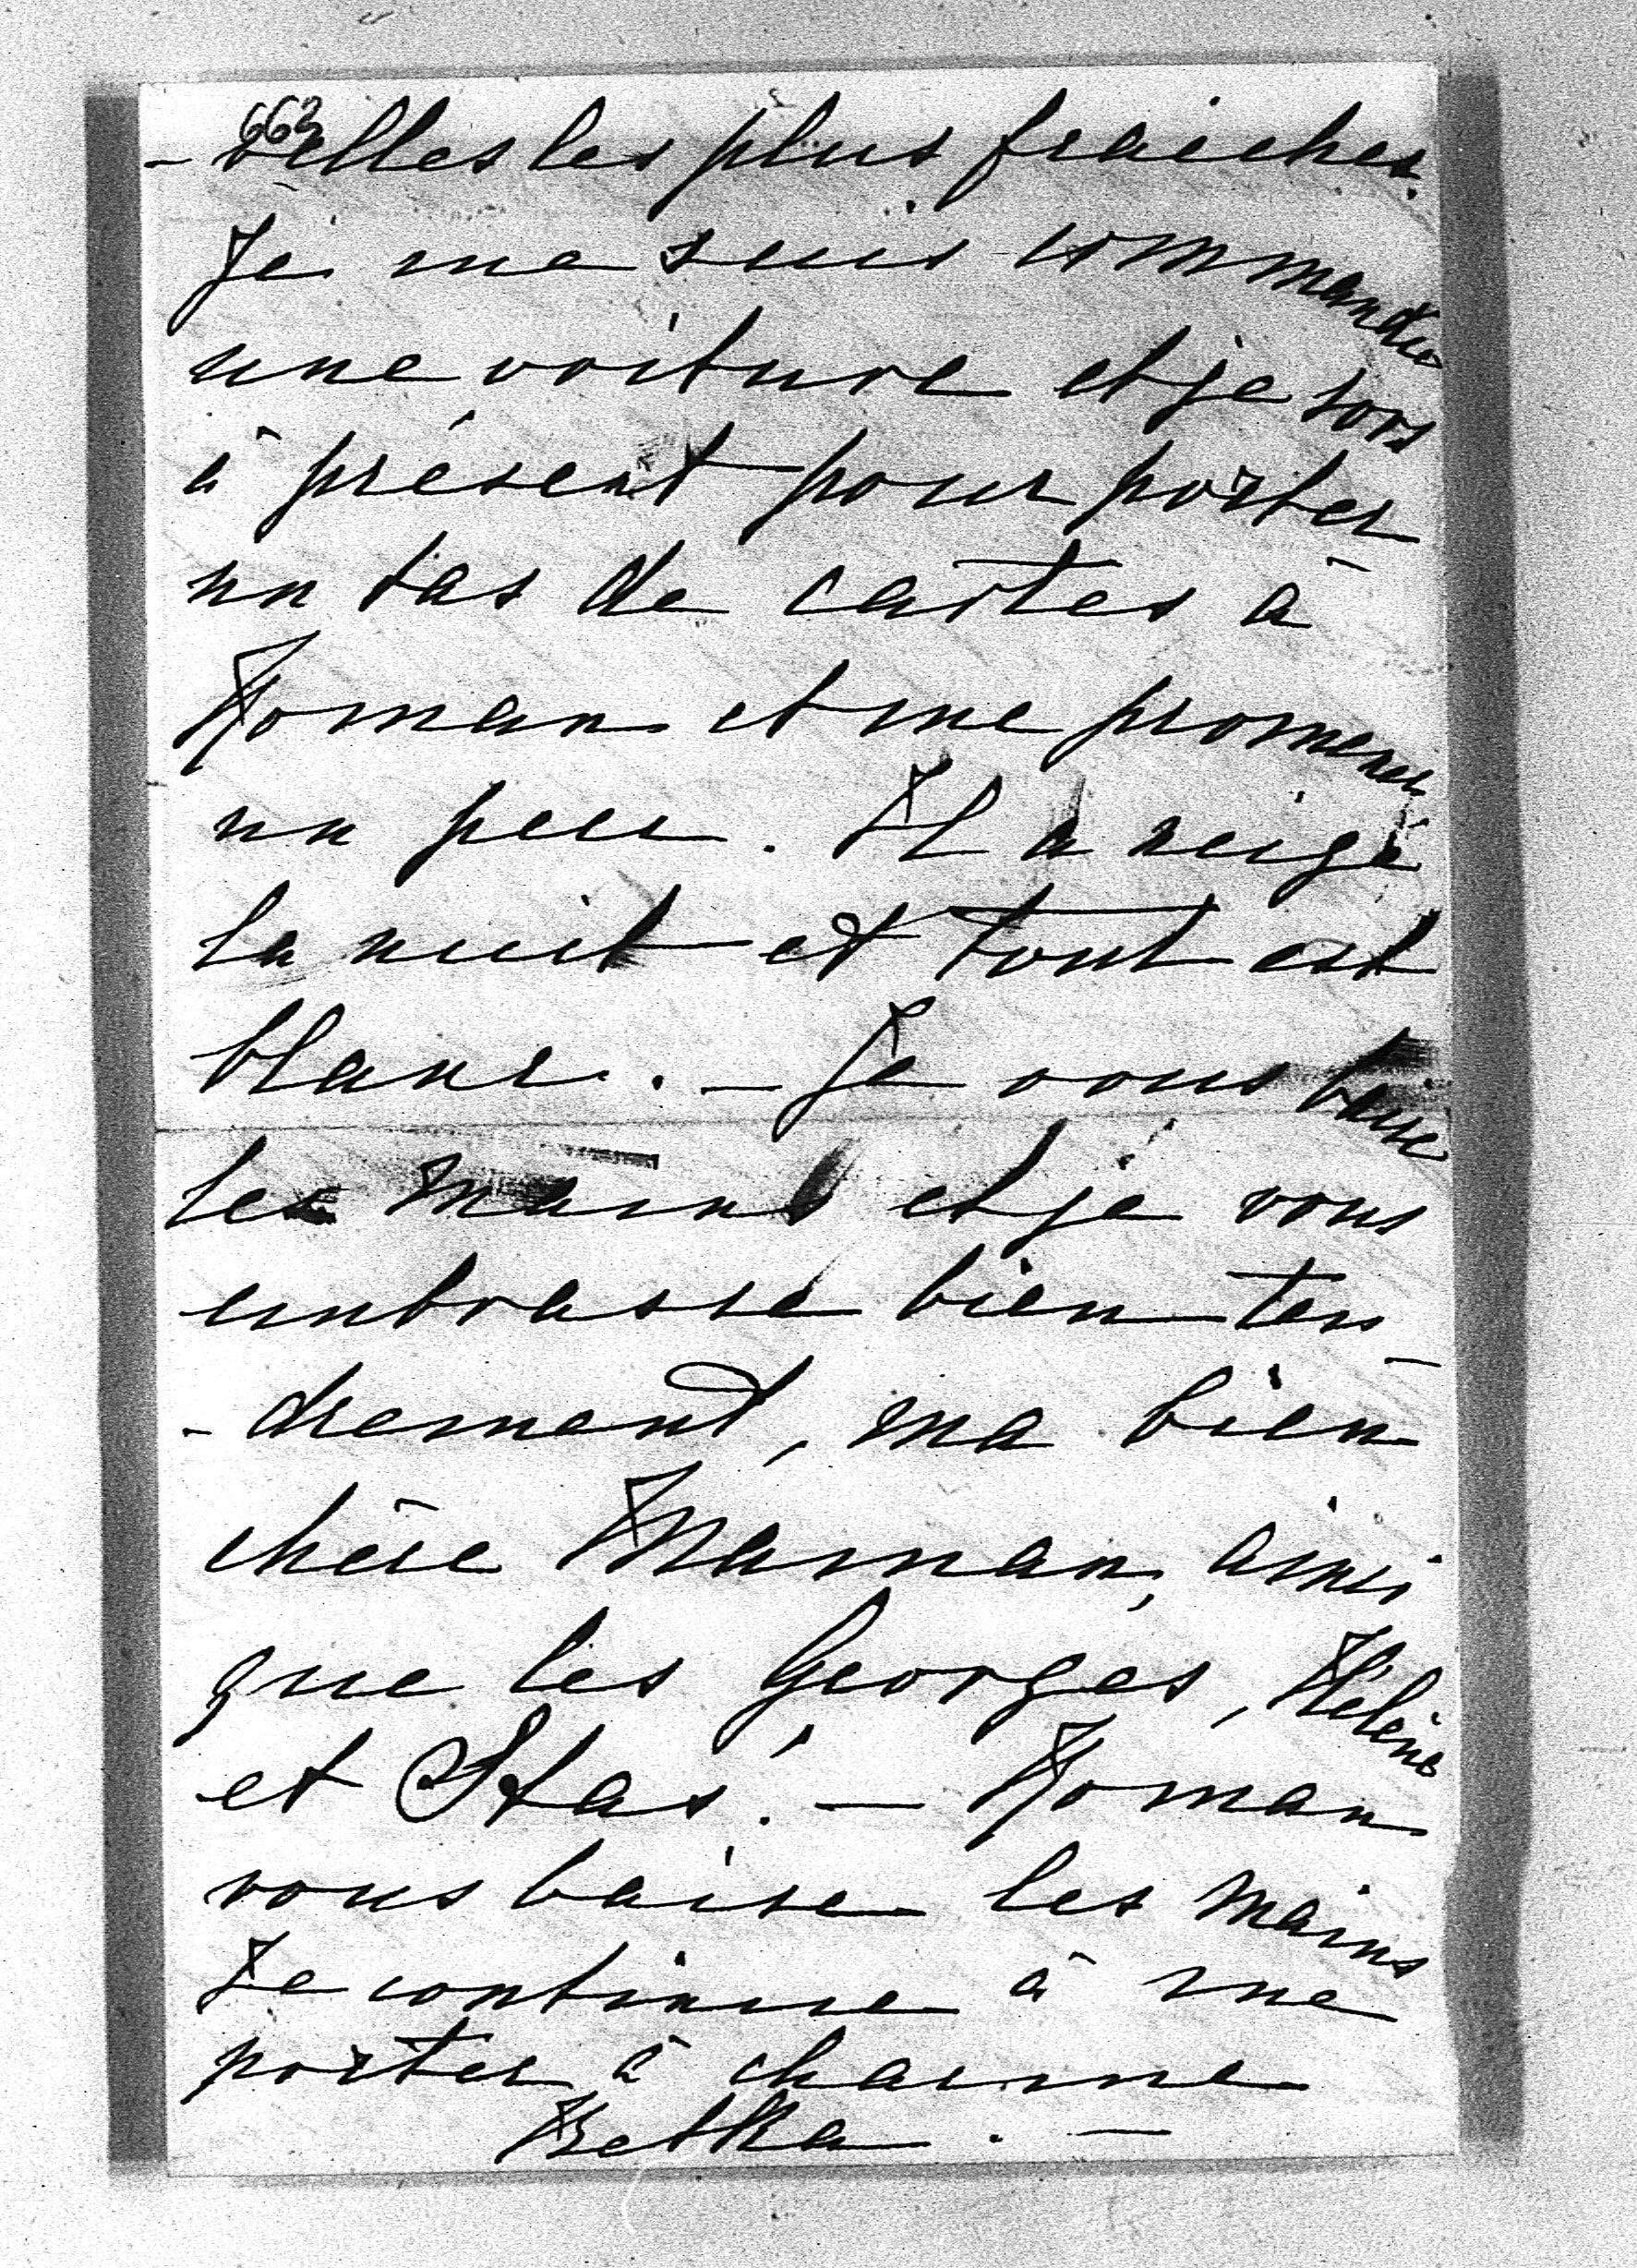 663
- velles les plus fraîches.
Je me suis commandé
une voiture et je sors
à présent pour porter
un tas de cartes à
Roman et me promener
un peu. Il a neigé
la nuit et tout est
blanc. - Je vous baise
les mains et je vous
embrasse bien ten-
- drement, ma bien
chère Maman, ainsi
que les Georges, Hélène
et Staś. - Roman
vous baise les mains
Je continue à me
porter à charme
Betka. -